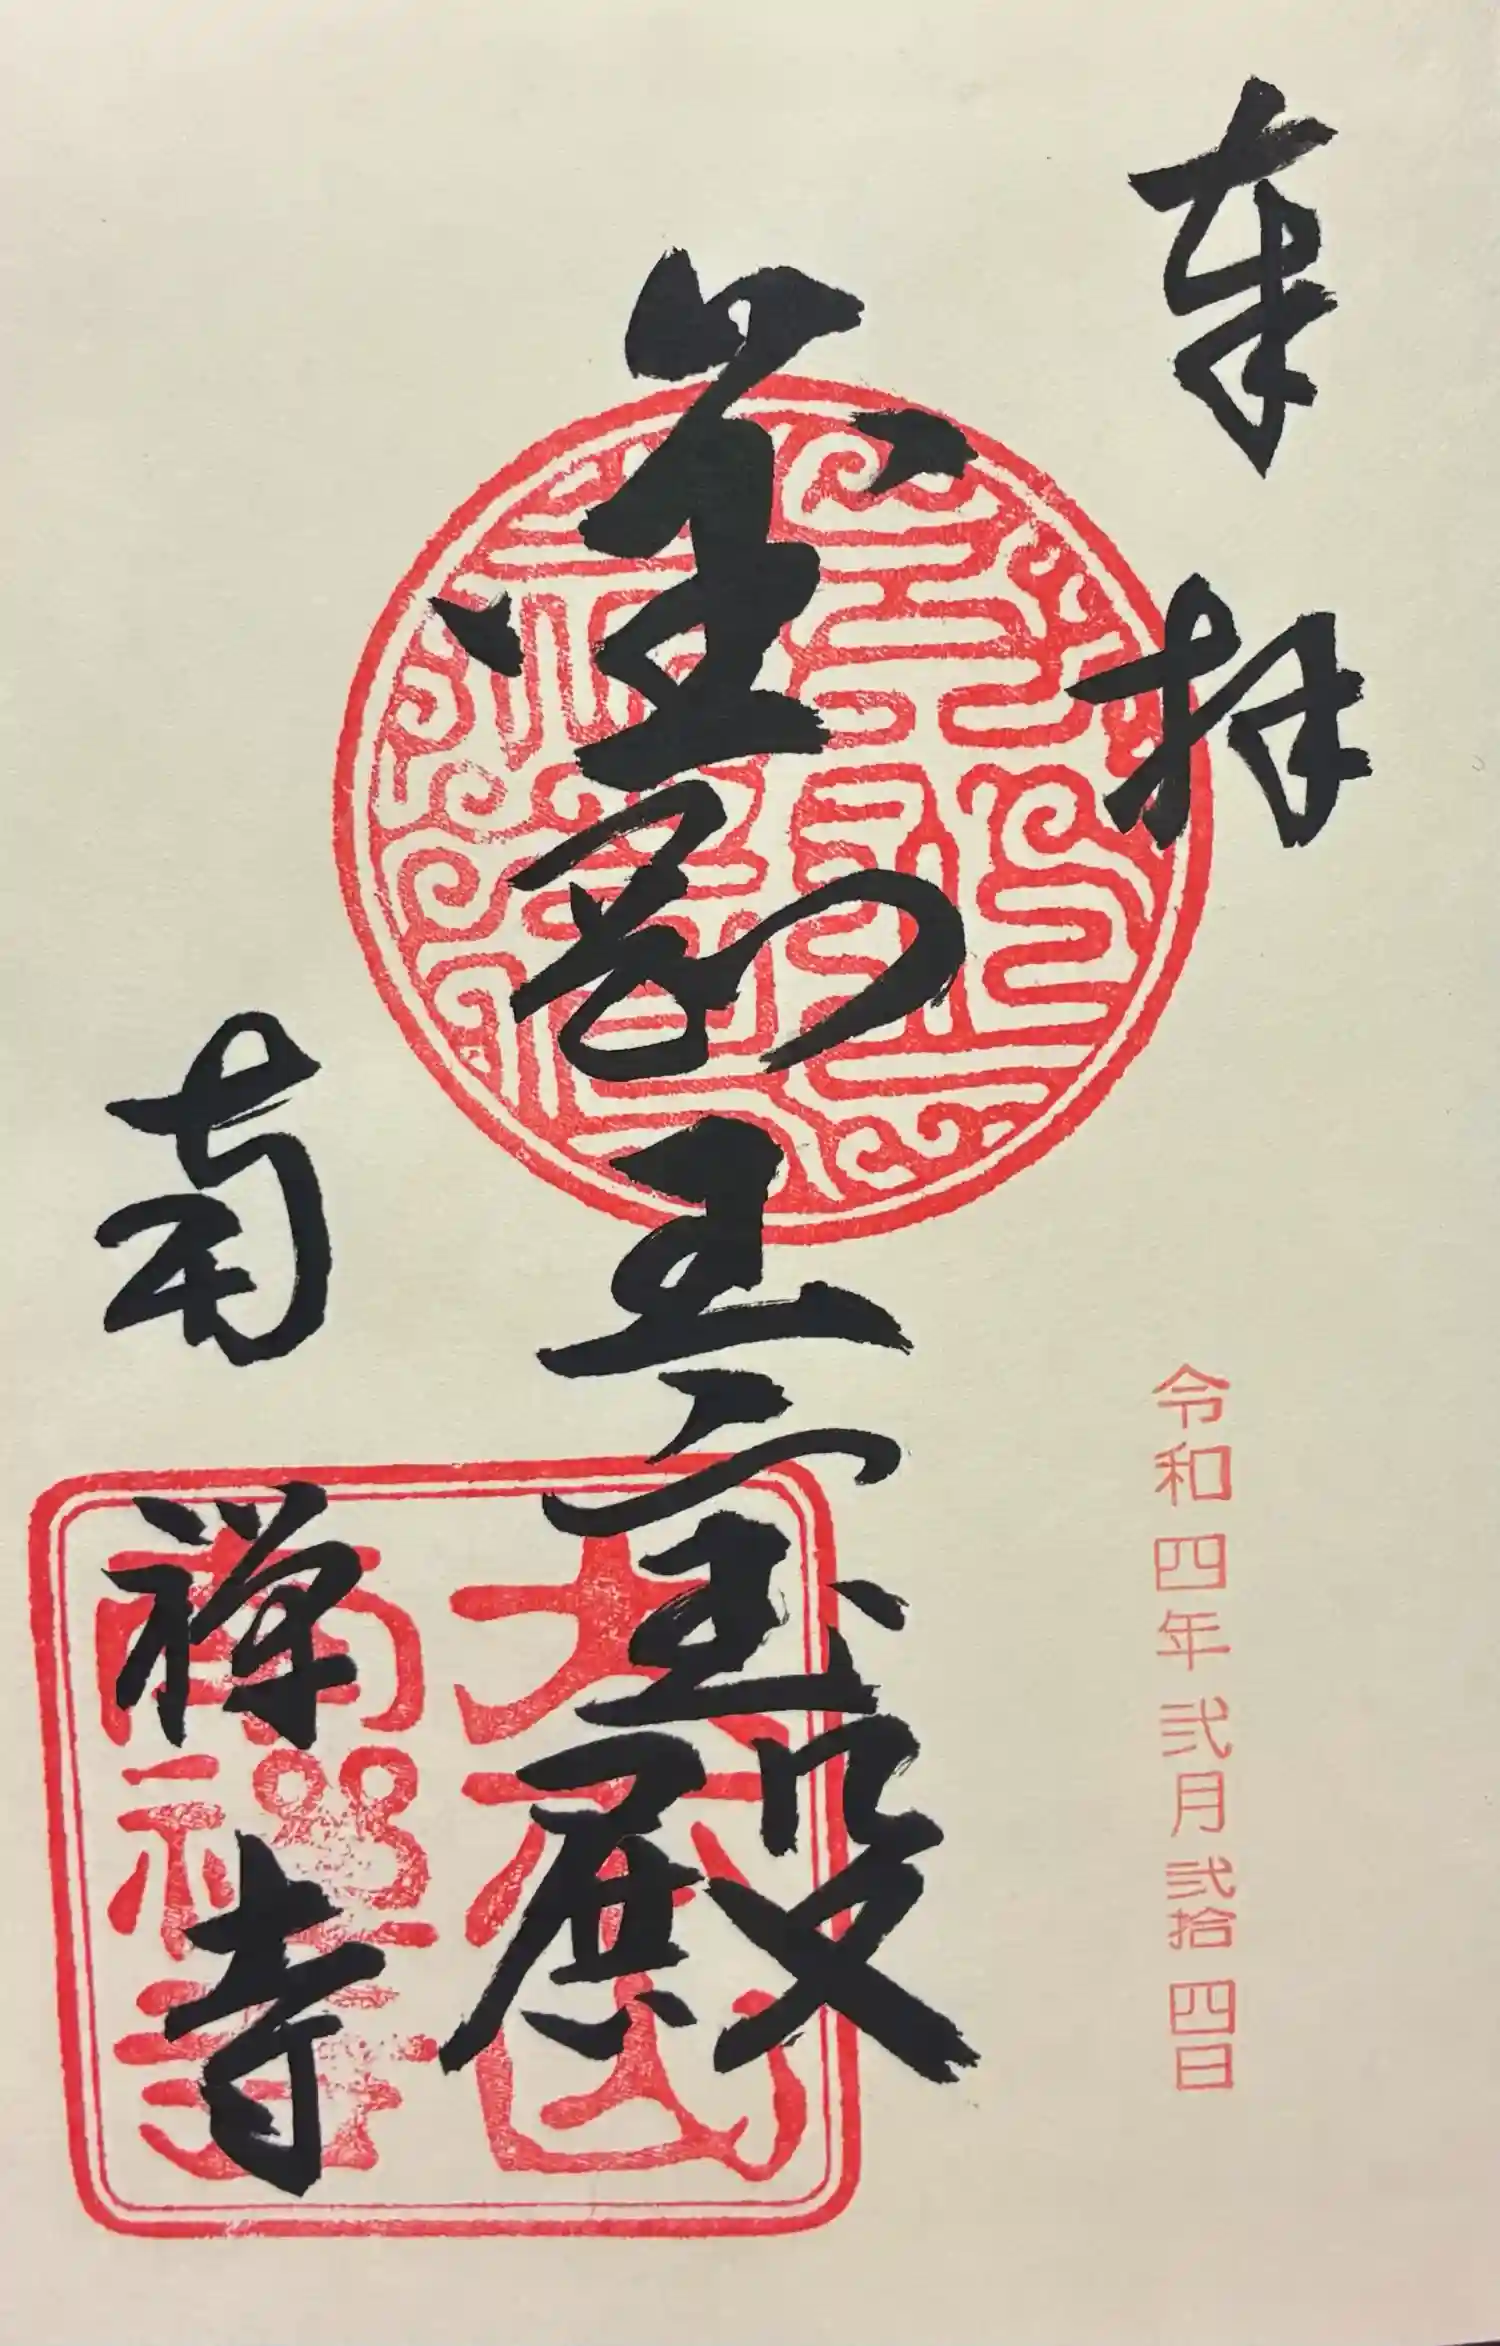 奉拝
令和四年弐月弐拾四日
金剛王宝殿
南禅寺
大本山
南禪寺